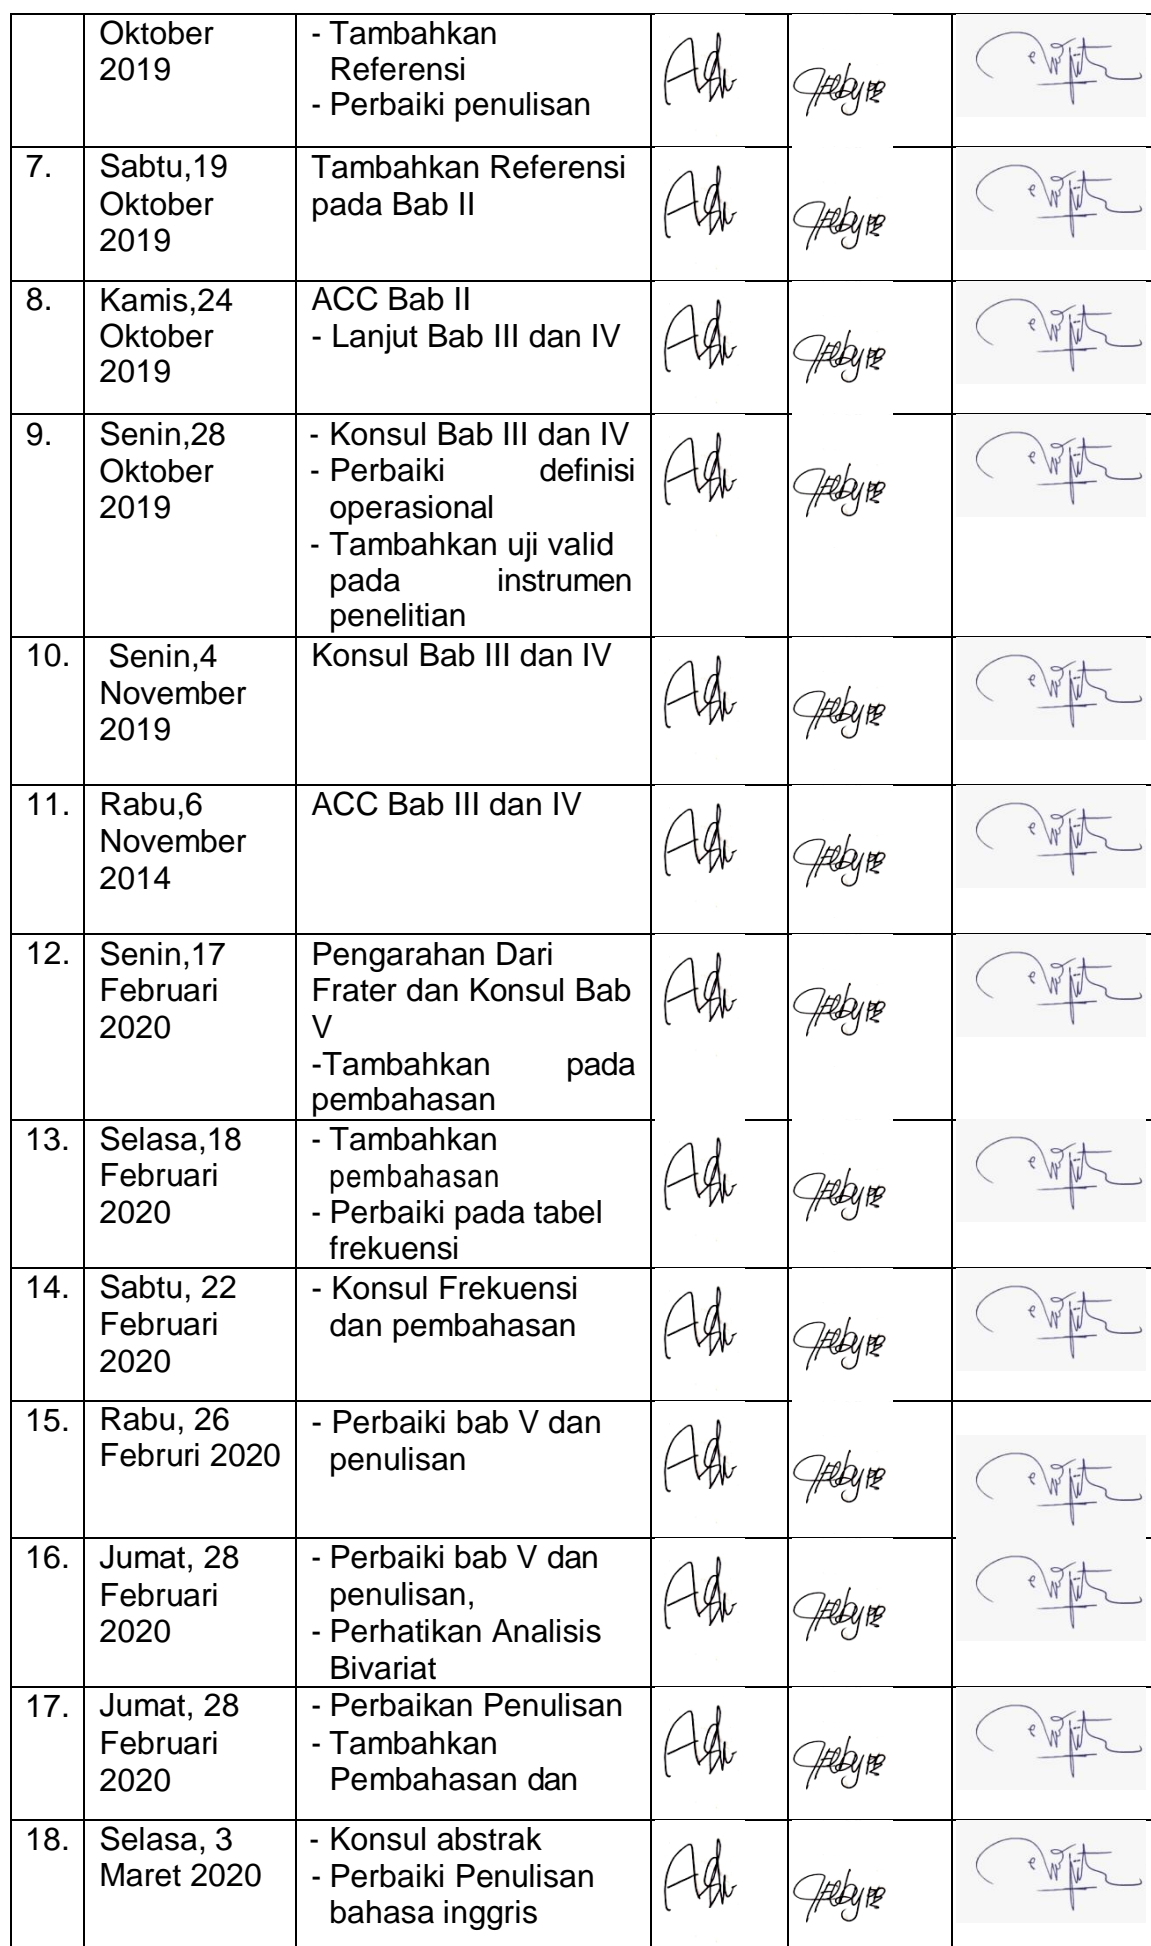 Oktober
2019
- Tambahkan
Referensi
- Perbaiki penulisan
7.
Sabtu,19
Oktober
2019
Tambahkan Referensi
pada Bab II
8.
Kamis,24
Oktober
2019
ACC Bab II
- Lanjut Bab III dan IV
9.
Senin,28
Oktober
2019
- Konsul Bab III dan IV
- Perbaiki definisi
operasional
- Tambahkan uji valid
pada instrumen
penelitian
10.
Senin,4
November
2019
Konsul Bab III dan IV
11.
Rabu,6
November
2014
ACC Bab III dan IV
12.
Senin,17
Februari
2020
Pengarahan Dari
Frater dan Konsul Bab
V
-Tambahkan pada
pembahasan
13.
Selasa,18
Februari
2020
- Tambahkan
pembahasan
- Perbaiki pada tabel
frekuensi
14.
Sabtu, 22
Februari
2020
- Konsul Frekuensi
dan pembahasan
15.
Rabu, 26
Februri 2020
- Perbaiki bab V dan
penulisan
16.
Jumat, 28
Februari
2020
- Perbaiki bab V dan
penulisan,
- Perhatikan Analisis
Bivariat
17.
Jumat, 28
Februari
2020
- Perbaikan Penulisan
- Tambahkan
Pembahasan dan
18.
Selasa, 3
Maret 2020
- Konsul abstrak
- Perbaiki Penulisan
bahasa inggris